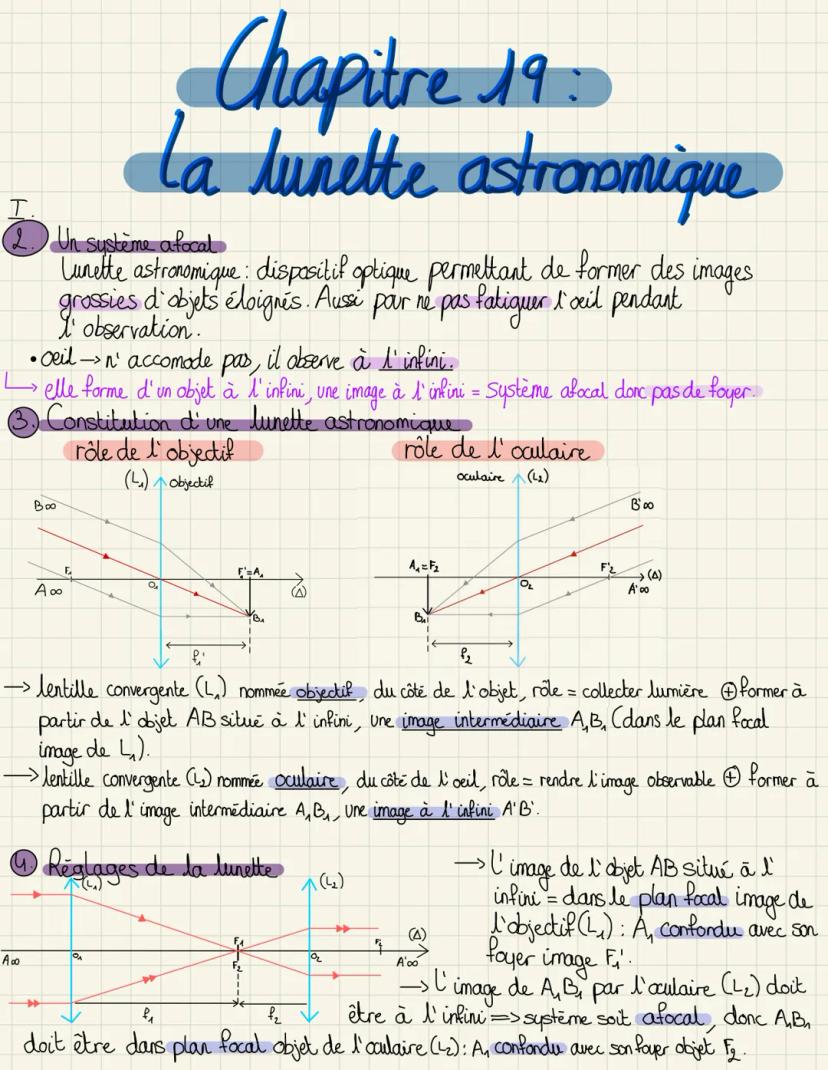 Chapitre 19 :
La lunette astronomique
I.
2. Un système afocal
Lunette astronomique : dispositif optique permettant de former des images
grossies d'objets éloignés. Aussi pour ne pas fatiguer l'oeil pendant
l'observation.
• oeil → n'accomode pas, il observe à l'infini.
↳ elle forme d'un objet à l'infini, une image à l'infini = système afocal donc pas de foyer.
3. Constitution d'une lunette astronomique
rôle de l'objectif
rôle de l'oculaire
(L₁) objectif
B∞
F₁
A∞
O₁
F₁'=A₁
(Δ)
B₁
f₁'
oculaire (L₂)
B'∞
A₁=F₂
F'₂
(Δ)
O₂
A'∞
B₁
f₂
→ lentille convergente (L₁) nommée objectif, du côté de l'objet, rôle = collecter lumière ⊕ former à
partir de l'objet AB situé à l'infini, une image intermédiaire A₁B₁ (dans le plan focal
image de L₁).
→ lentille convergente (L₂) nommée oculaire, du côté de l'oeil, rôle = rendre l'image observable ⊕ former à
partir de l'image intermédiaire A₁B₁, une image à l'infini A'B'.
4. Réglages de la lunette
(L₁)
(L₂)
F₁
(Δ)
A∞
O₁
F₂
O₂
A'∞
f₁
f₂
→ L'image de l'objet AB situé à l'
infini = dans le plan focal image de
l'objectif (L₁) : A₁ confondu avec son
foyer image F₁'.
→ L'image de A₁B₁ par l'oculaire (L₂) doit
être à l'infini ⇒ système soit afocal, donc A₁B₁
doit être dans plan focal objet de l'oculaire (L₂) : A₁ confondu avec son foyer objet F₂.